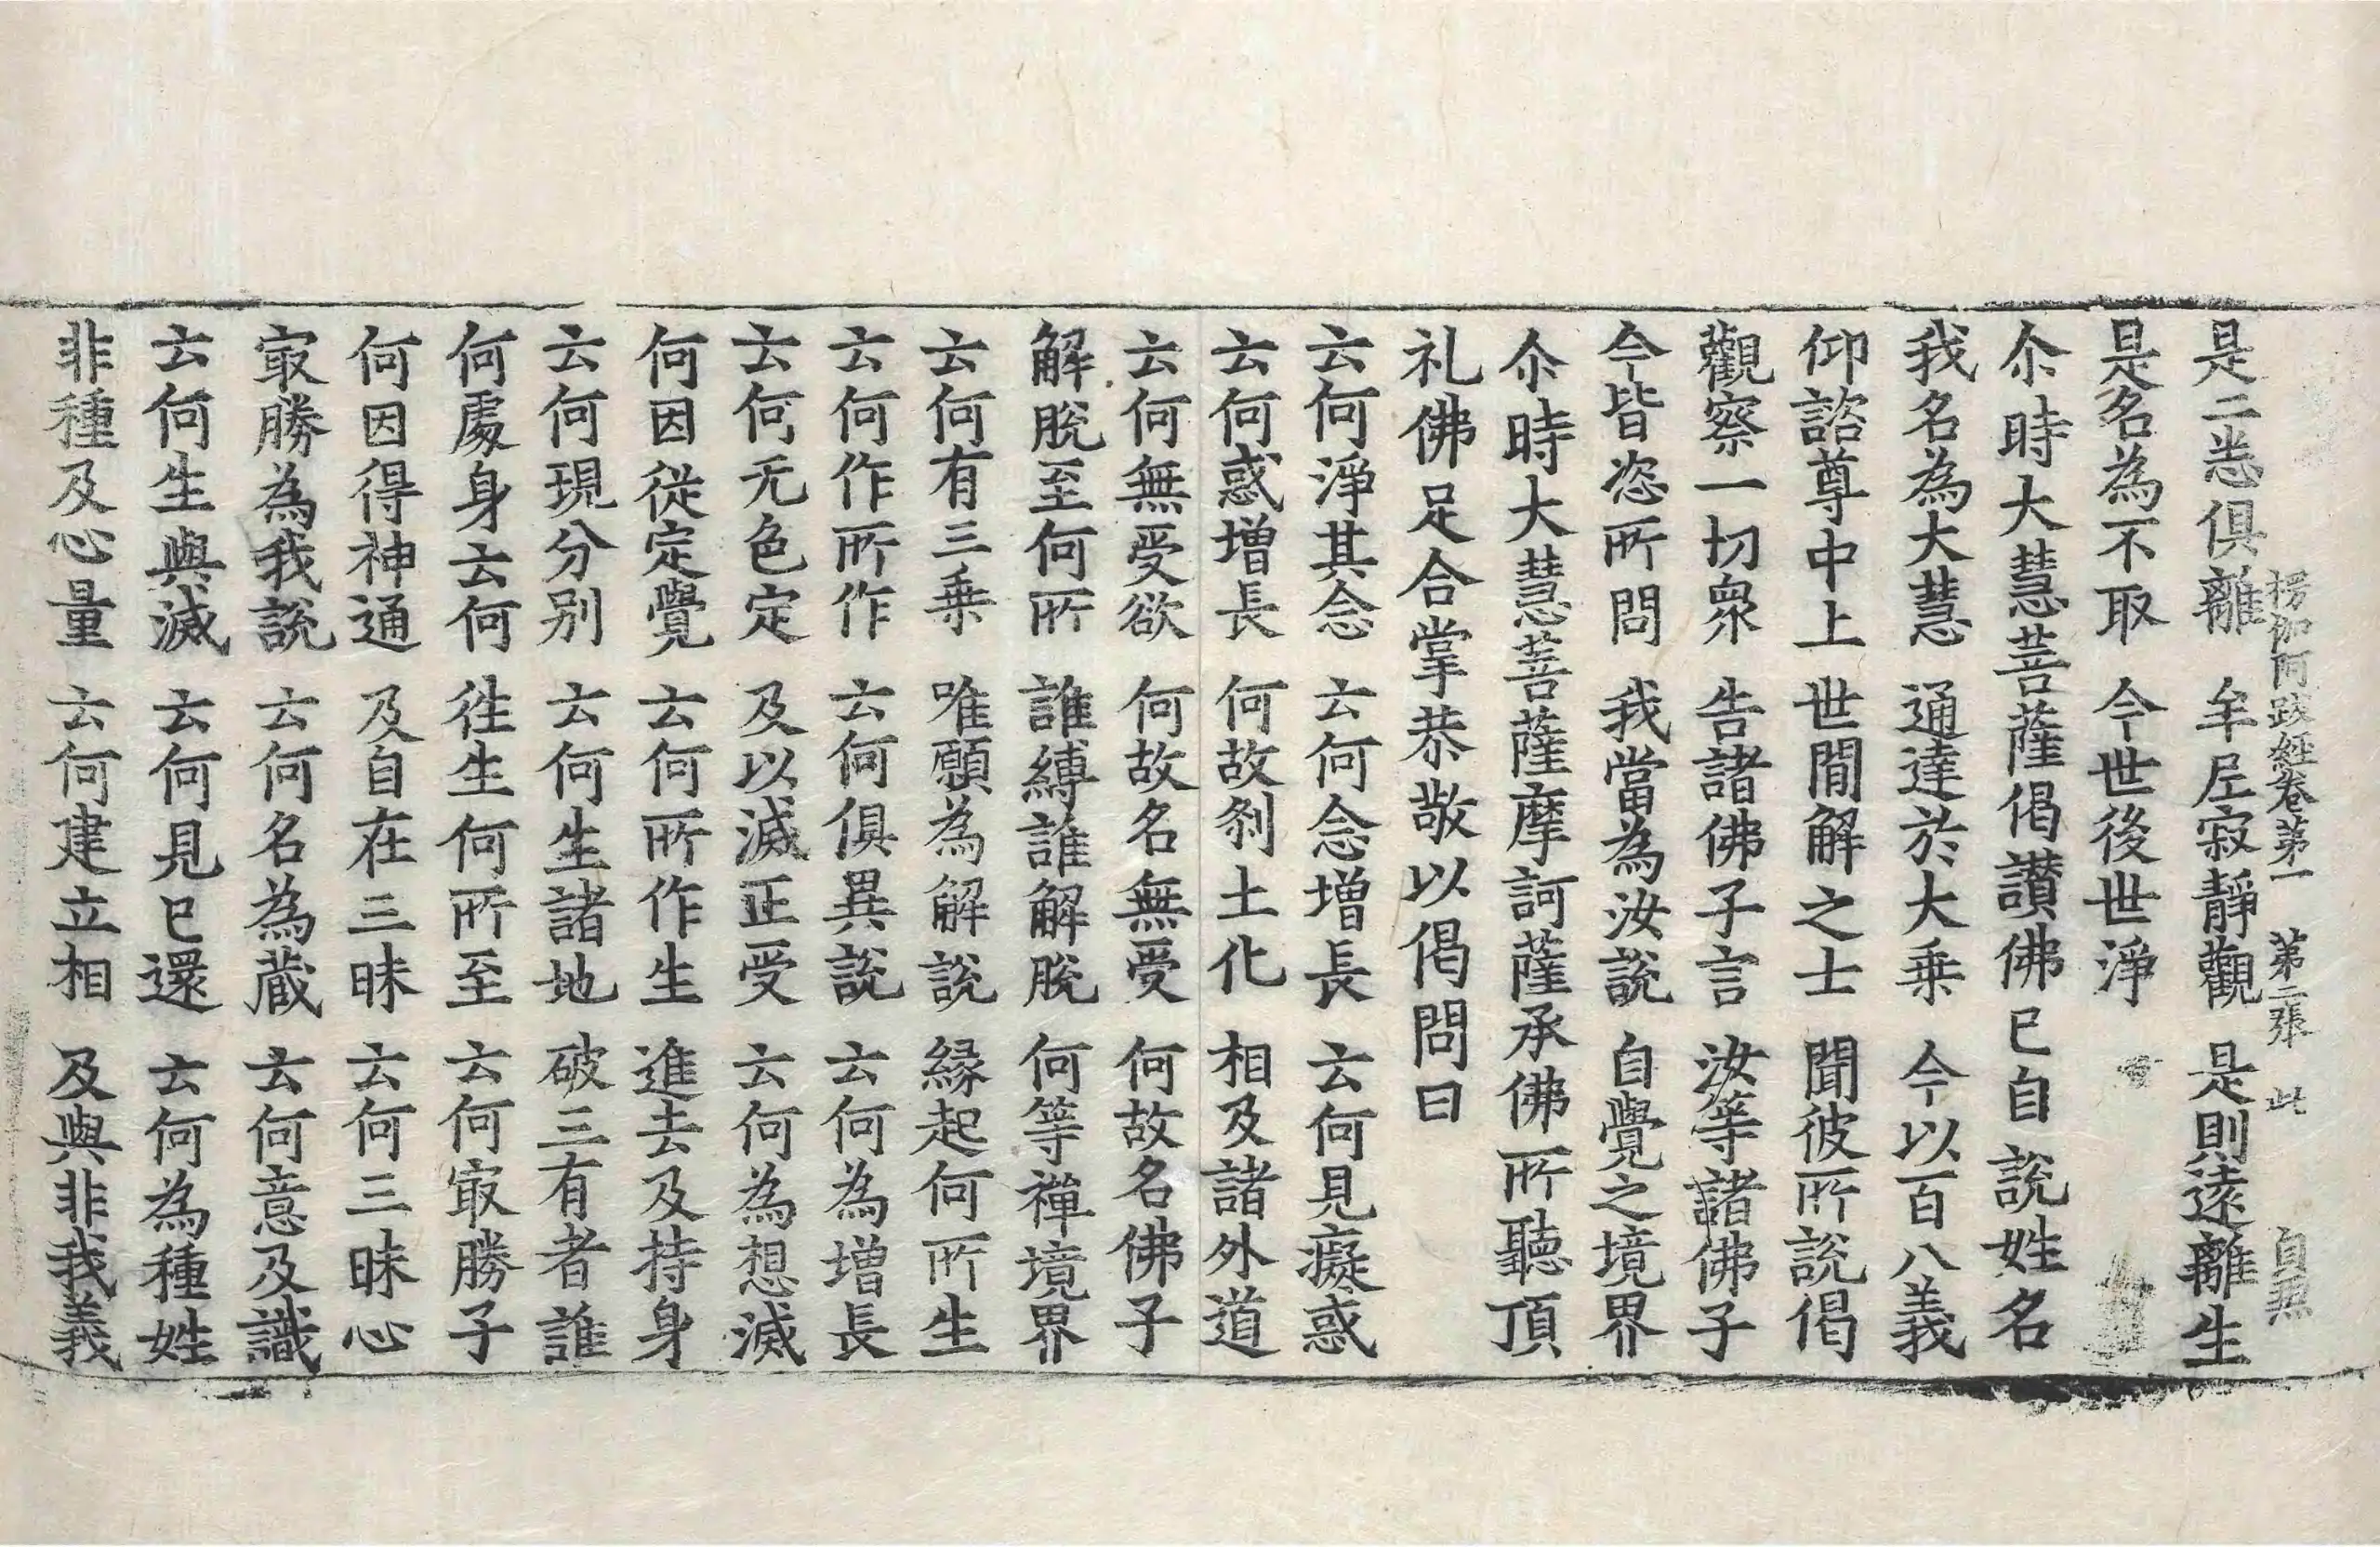 楞伽阿跋經卷第一　第二張　此　自照
是二悉俱離　牟尼寂靜觀　是則遠離生
是名為不取　今世後世淨
尒時大慧菩薩偈讚佛已自說姓名
我名為大慧　通達於大乗　今以百八義
仰諮尊中上　世閒解之士　聞彼所說偈
觀察一切衆　告諸佛子言　汝等諸佛子
今皆恣所問　我當為汝說　自覺之境界
尒時大慧菩薩摩訶薩承佛所聽頂
礼佛足合掌恭敬以偈問曰
云何淨其念　云何念增長　云何見癡惑
云何惑增長　何故刹土化　相及諸外道
云何無受欲　何故名無受　何故名佛子
解脫至何所　誰縛誰解脫　何等禪境界
云何有三乗　唯願為解說　緣起何所生
云何作所作　云何俱異說　云何為增長
云何无色定　及以滅正受　云何為想滅
何因從定覺　云何所作生　進去及持身
云何現分別　云何生諸地　破三有者誰
何處身云何　徃生何所至　云何冣勝子
何因得神通　及自在三昧　云何三昧心
冣勝為我說　云何名為蔵　云何意及識
云何生與滅　云何見已還　云何為種姓
非種及心量　云何建立相　及與非我義